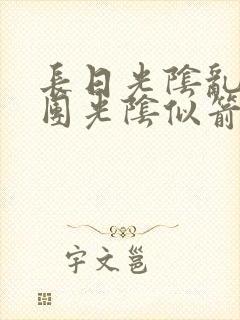 長日光陰亂
團光陰似箭
字文邕